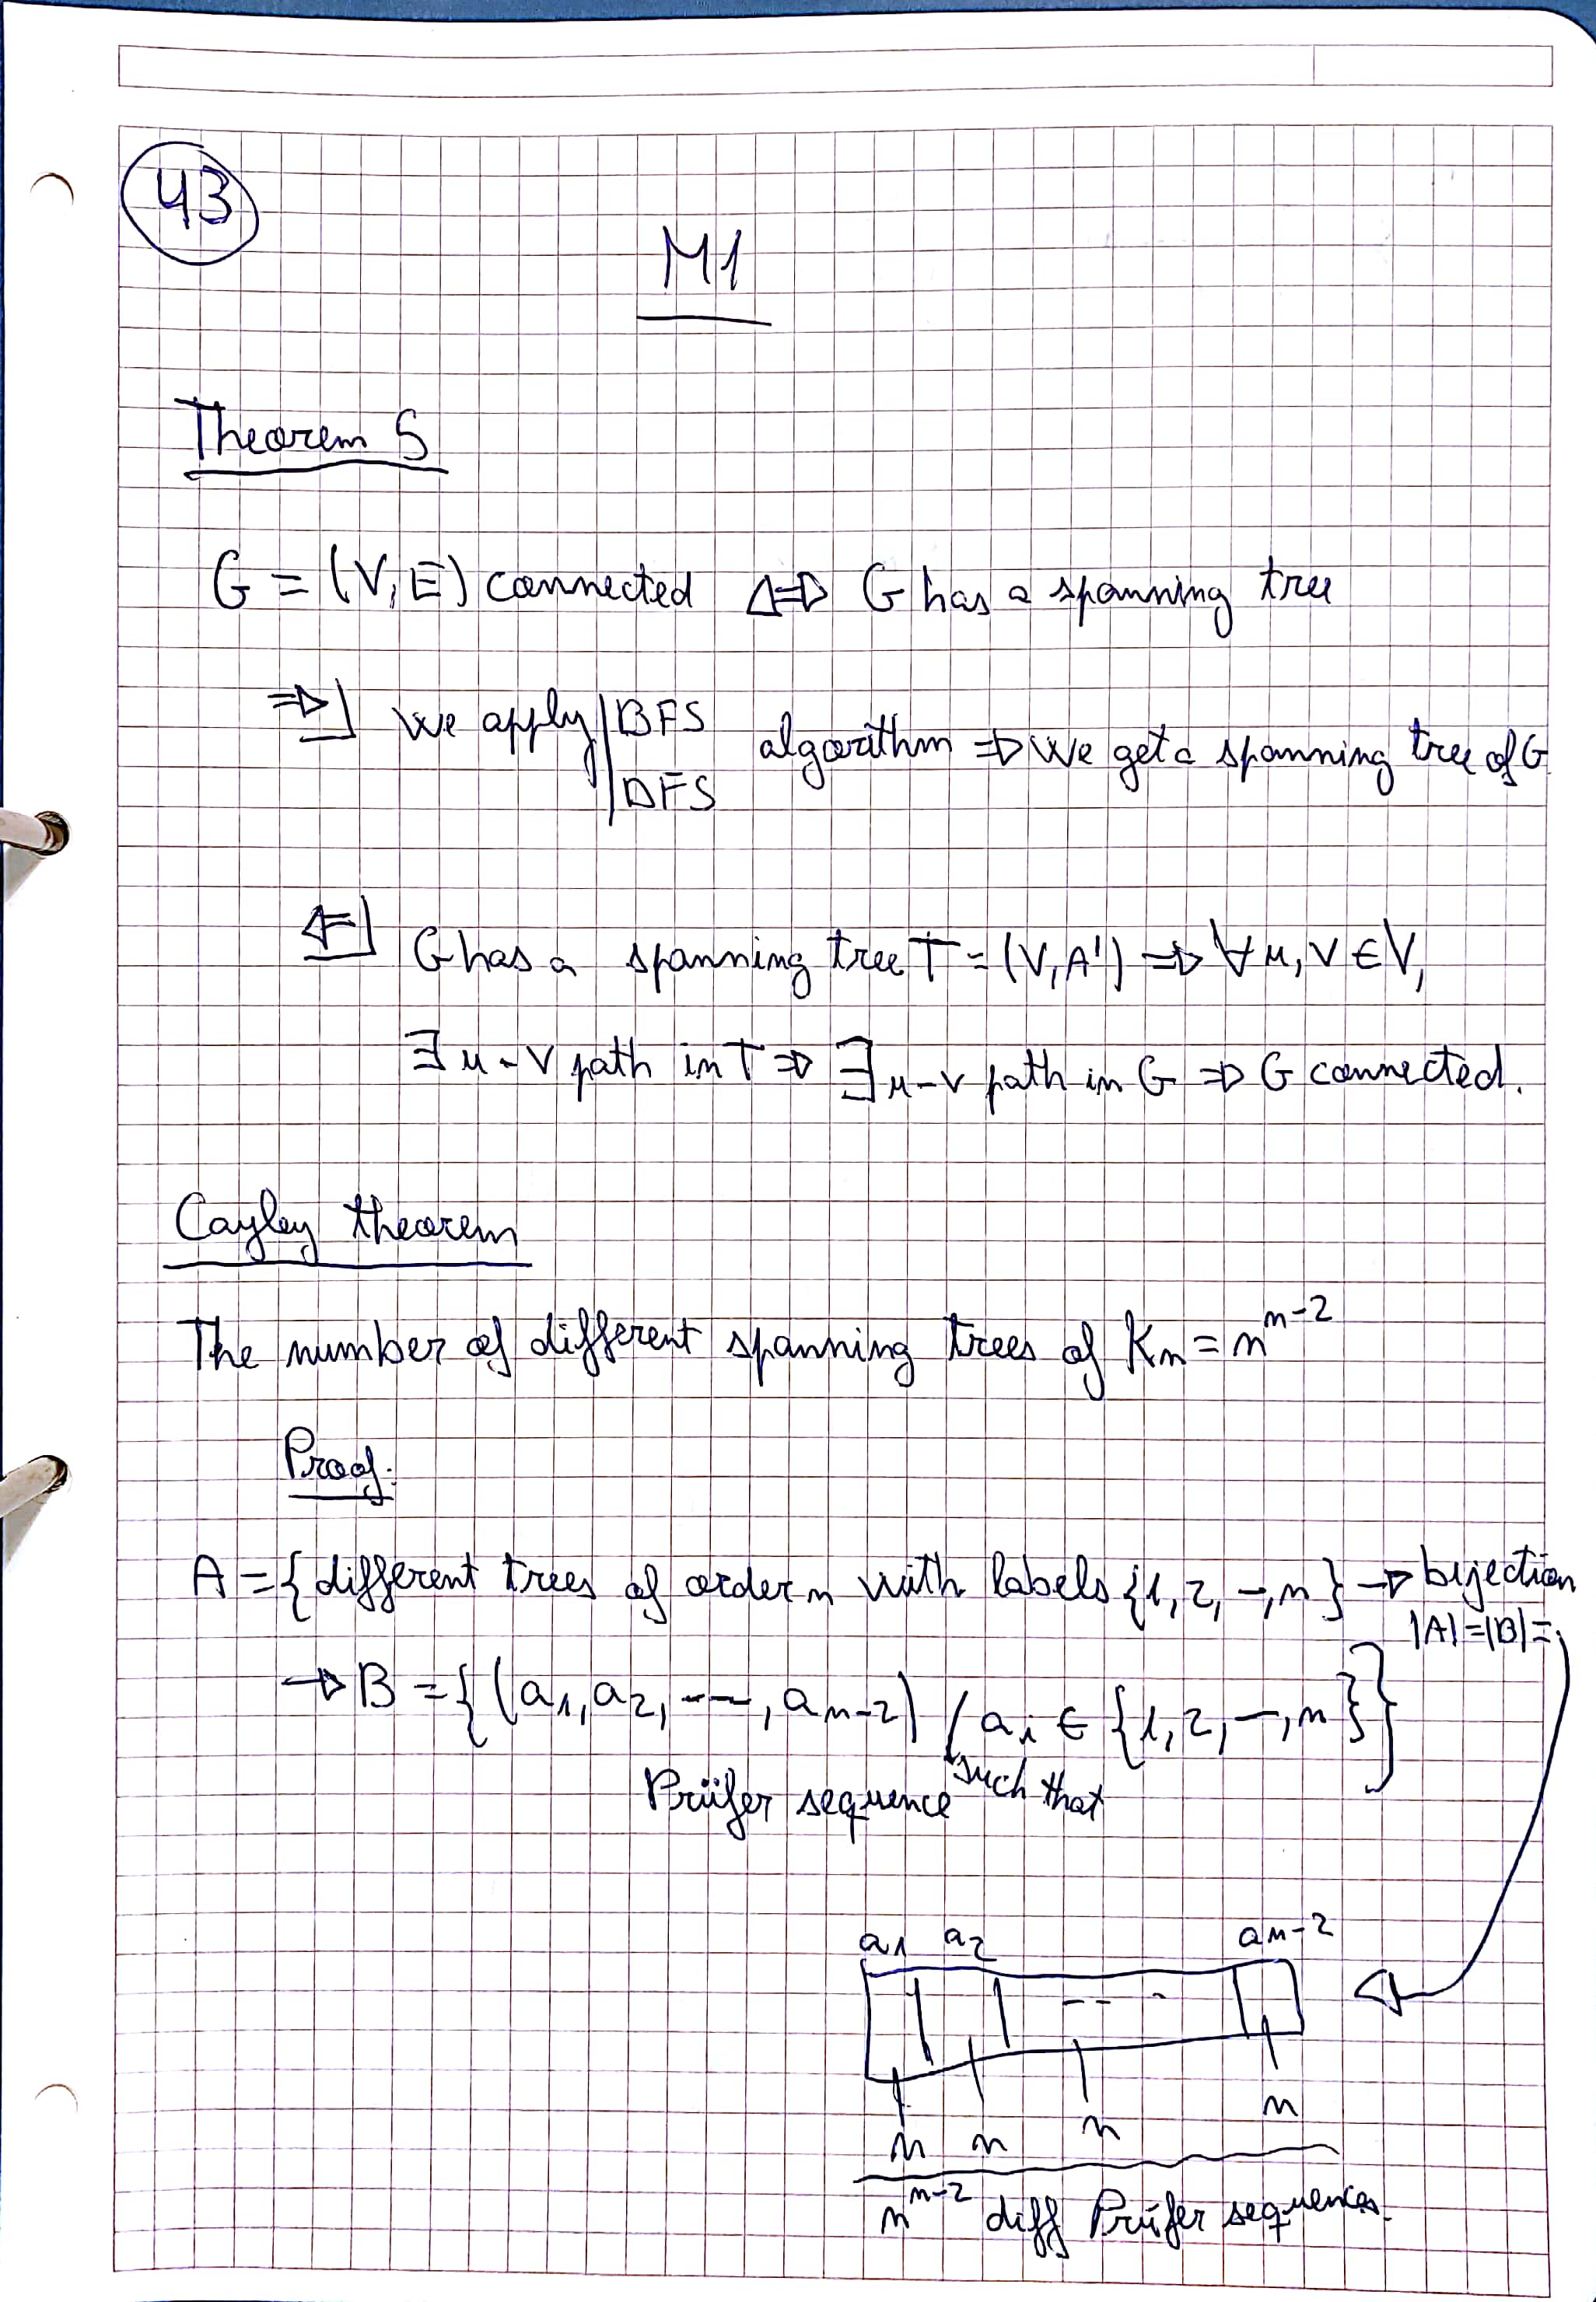 43
M1
Theorem 5
G = (V, E) connected ⇔ G has a spanning tree
⇒] We apply | BFS
DFS algorithm ⇒ We get a spanning tree of G
⇐] G has a spanning tree T = (V, A') ⇒ ∀ u, v ∈ V,
∃ u-v path in T ⇒ ∃ u-v path in G ⇒ G connected.
Cayley theorem
The number of different spanning trees of Kn = n^(n-2)
Proof:
A = { different trees of order n with labels {1, 2, —, n} → bijection
|A| = |B| =
→ B = { (a1, a2, ---, an-2) / ai ∈ {1, 2, —, n} }
Prüfer sequence such that
a1 a2 an-2
-- -
n n n n
n^(n-2) diff Prüfer sequences.